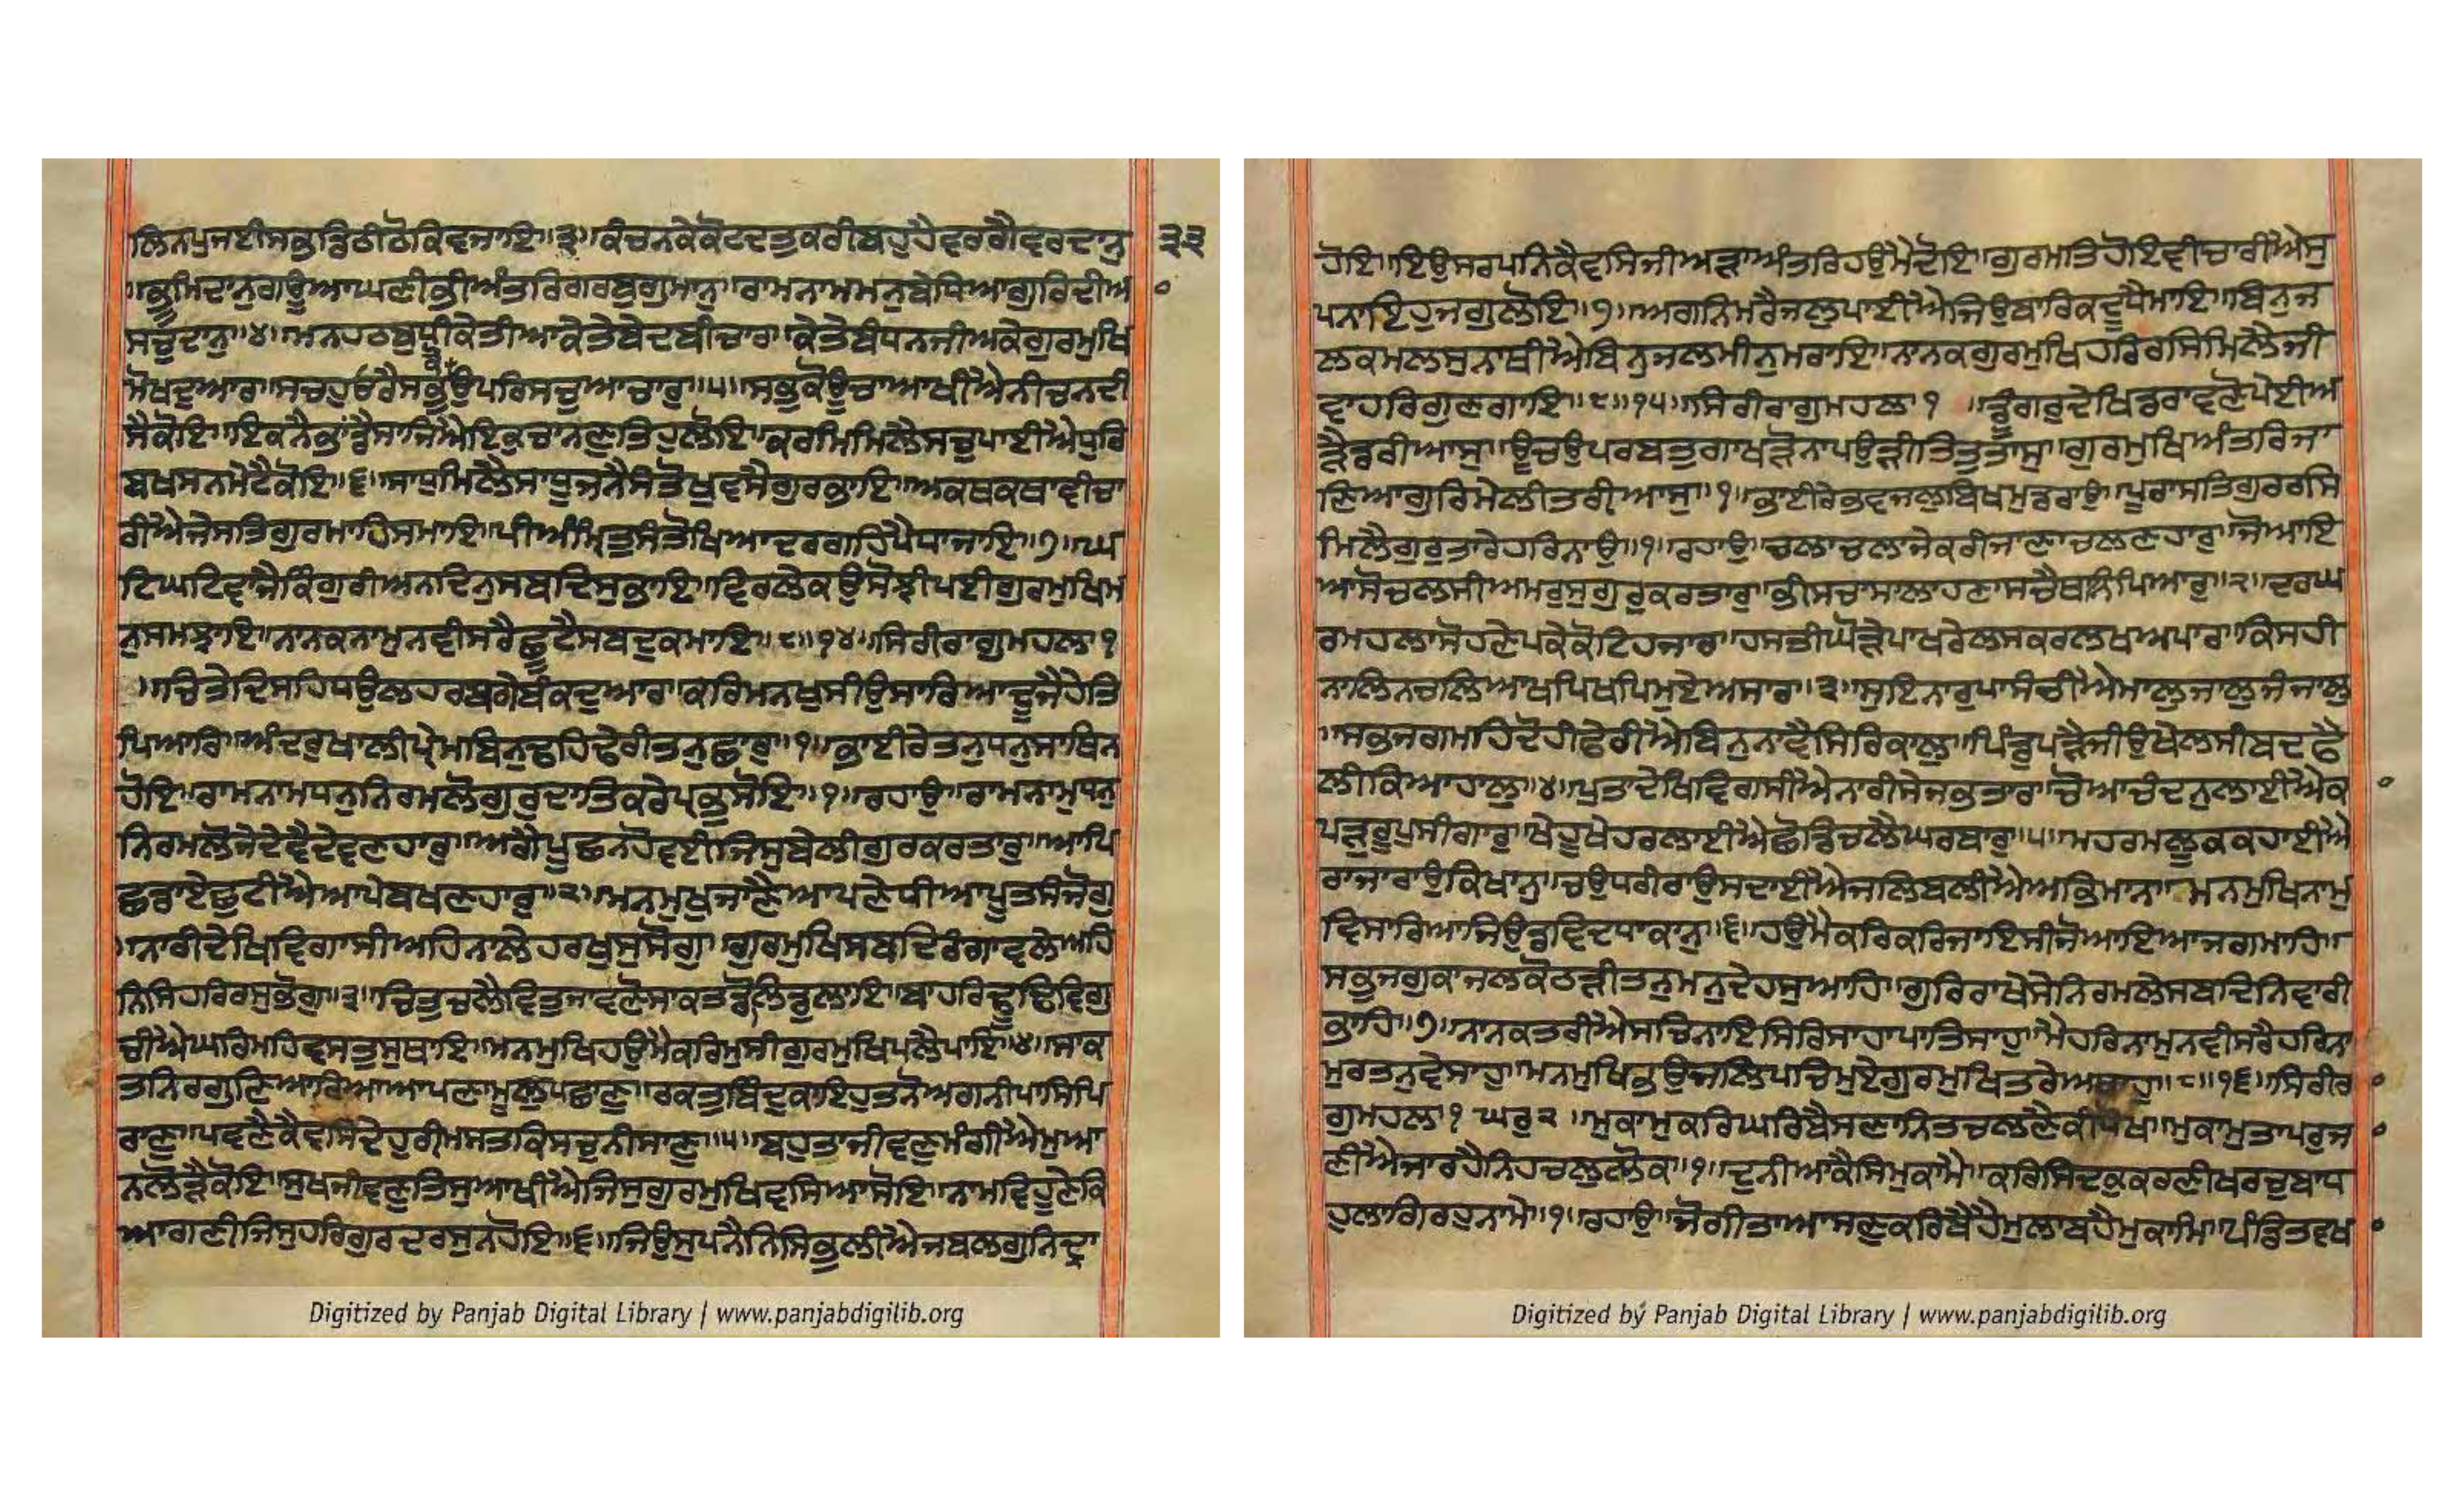 ਲਿਨਪੁਜਈਸਭੁਡਿਠੀਠੋਕਿਵਜਾਇ॥੩॥ਕੰਚਨਕੇਕੋਟਦਤੁਕਰੀਬਹੁਹੈਵਰਗੈਵਰਦਾਨੁ
੩੩
॥ਭੂਮਿਦਾਨੁਗਊਆਘਣੀਭੀਅੰਤਰਿਗਰਬੁਗੁਮਾਨੁ॥ਰਾਮਨਾਮਮਨੁਬੇਧਿਆਗੁਰਿਦੀਆ
ਸਚੁਦਾਨੁ॥੪॥ਮਨਹਠਬੁਧੀਕੇਤੀਆਕੇਤੇਬੇਦਬੀਚਾਰ॥ਕੇਤੇਬੰਧਨਜੀਅਕੇਗੁਰਮੁਖਿ
ਮੋਖਦੁਆਰ॥ਸਚਹੁਓਰੈਸਭੁਉਪਰਿਸਚੁਆਚਾਰੁ॥੫॥ਸਭੁਕੋਊਚਾਆਖੀਐਨੀਚਨਦੀ
ਸੈਕੋਇ॥ਇਕਨੈਭਾਂਡੈਸਾਜਿਐਇਕੁਚਾਨਣੁਤਿਹੁਲੋਇ॥ਕਰਮਿਮਿਲੈਸਚੁਪਾਈਐਧੁਰਿ
ਬਖਸਨਮੇਟੈਕੋਇ॥੬॥ਸਾਧੁਮਿਲੈਸਾਧੂਜਨੈਸੰਤੋਖੁਵਸੈਗੁਰਭਾਇ॥ਅਕਥਕਥਾਵੀਚਾ
ਰੀਐਜੇਸਤਿਗੁਰਮਾਹਿਸਮਾਇ॥ਪੀਅੰਮ੍ਰਿਤੁਸੰਤੋਖਿਆਦਰਗਹਿਪੈਧਾਜਾਇ॥੭॥ਘ
ਟਿਘਟਿਵਾਜੈਕਿੰਗੁਰੀਅਨਦਿਨੁਸਬਦਿਸੁਭਾਇ॥ਵਿਰਲੇਕਉਸੋਝੀਪਈਗੁਰਮੁਖਿਮ
ਨੁਸਮਝਾਇ॥ਨਾਨਕਨਾਮੁਨਵੀਸਰੈਛੂਟੈਸਬਦੁਕਮਾਇ॥੮॥੧੪॥ਸਿਰੀਰਾਗੁਮਹਲਾ੧
॥ਚਿਤੇਦਿਸਹਿਧਉਲਹਰਬਗੇਬੰਕਦੁਆਰ॥ਕਰਿਮਨਖੁਸੀਉਸਾਰਿਆਦੂਜੈਹੇਤਿ
ਪਿਆਰਿ॥ਅੰਦਰੁਖਾਲੀਪ੍ਰੇਮਬਿਨੁਢਹਿਢੇਰੀਤਨੁਛਾਰੁ॥੧॥ਭਾਈਰੇਤਨੁਧਨੁਸਾਥਿਨ
ਹੋਇ॥ਰਾਮਨਾਮਧਨੁਨਿਰਮਲੋਗੁਰੁਦਾਤਿਕਰੇਪ੍ਰਭੁਸੋਇ॥੧॥ਰਹਾਉ॥ਰਾਮਨਾਮੁਧਨੁ
ਨਿਰਮਲੋਜੇਦੇਵੈਦੇਵਣਹਾਰੁ॥ਅਗੈਪੂਛਨਹੋਵਈਜਿਸੁਬੇਲੀਗੁਰਕਰਤਾਰੁ॥ਆਪਿ
ਛਡਾਏਛੁਟੀਐਆਪੇਬਖਣਹਾਰੁ॥੨॥ਮਨਮੁਖੁਜਾਣੈਆਪਣੇਧੀਆਪੂਤਸੰਜੋਗੁ
॥ਨਾਰੀਦੇਖਿਵਿਗਾਸੀਅਹਿਨਾਲੇਹਰਖੁਸੁਸੋਗੁ॥ਗੁਰਮੁਖਿਸਬਦਿਰੰਗਾਵਲੇਅਹਿ
ਨਿਸਿਹਰਿਰਸੁਭੋਗੁ॥੩॥ਚਿਤੁਚਲੈਵਿਤੁਜਾਵਣੋਸਾਕਤਡੋਲਿਡੁਲਾਇ॥ਬਾਹਰਿਢੂਢਿਵਿਗੁ
ਚੀਐਘਰਿਮਹਿਵਸਤੁਸੁਥਾਇ॥ਮਨਮੁਖਿਹਉਮੈਕਰਿਮੁਸੀਗੁਰਮੁਖਿਪਲੈਪਾਇ॥੪॥ਸਾਕ
ਤਨਿਰਗੁਣਿਆਰਿਆਆਪਣਾਮੂਲੁਪਛਾਣੁ॥ਰਕਤੁਬਿੰਦੁਕਾਇਹੁਤਨੋਅਗਨੀਪਾਸਿਪਿ
ਰਾਣੁ॥ਪਵਣੈਕੈਵਸਿਦੇਹੁਰੀਮਸਤਕਿਸਚੁਨੀਸਾਣੁ॥੫॥ਬਹੁਤਾਜੀਵਣੁਮੰਗੀਐਮੁਆ
ਨਲੋੜੈਕੋਇ॥ਸੁਖਜੀਵਣੁਤਿਸੁਆਖੀਐਜਿਸੁਗੁਰਮੁਖਿਵਸਿਆਸੋਇ॥ਨਾਮਵਿਹੂਣੇਕਿ
ਆਗਣੀਜਿਸੁਹਰਿਗੁਰਦਰਸੁਨਹੋਇ॥੬॥ਜਿਉਸੁਪਨੈਨਿਸਿਭੁਲੀਐਜਬਲਗੁਨਿਦ੍ਰਾ
Digitized by Panjab Digital Library | www.panjabdigilib.org
ਹੋਇ॥ਇਉਸਰਪਨਿਕੈਵਸਿਜੀਅੜਾਅੰਤਰਿਹਉਮੈਦੋਇ॥ਗੁਰਮਤਿਹੋਇਵੀਚਾਰੀਐਸੁ
ਪਨਾਇਹੁਜਗੁਲੋਇ॥੭॥ਅਗਨਿਮਰੈਜਲੁਪਾਈਐਜਿਉਬਾਰਿਕਦੂਧੈਮਾਇ॥ਬਿਨੁਜ
ਲਕਮਲਸੁਨਾਥੀਐਬਿਨੁਜਲਮੀਨੁਮਰਾਇ॥ਨਾਨਕਗੁਰਮੁਖਿਹਰਿਰਸਿਮਿਲੈਜੀ
ਵਾਹਰਿਗੁਣਗਾਇ॥੮॥੧੫॥ਸਿਰੀਰਾਗੁਮਹਲਾ੧ ॥ਡੂੰਗਰੁਦੇਖਿਡਰਾਵਣੋਪੇਈਅ
ੜੈਡਰੀਆਸੁ॥ਊਚਉਪਰਬਤੁਗਾਖੜੋਨਾਪਉੜੀਤਿਤੁਤਾਸੁ॥ਗੁਰਮੁਖਿਅੰਤਰਿਜਾ
ਣਿਆਗੁਰਿਮੇਲੀਤਰੀਆਸੁ॥੧॥ਭਾਈਰੇਭਵਜਲੁਬਿਖਮੁਡਰਾਉ॥ਪੂਰਾਸਤਿਗੁਰਰਸਿ
ਮਿਲੈਗੁਰੁਤਾਰੇਹਰਿਨਾਉ॥੧॥ਰਹਾਉ॥ਚਲਾਚਲਾਜੇਕਰੀਜਾਣਾਚਲਣਹਾਰੁ॥ਜੋਆਇ
ਆਸੋਚਲਸੀਅਮਰੁਸੁਗੁਰੁਕਰਤਾਰੁ॥ਭੀਸਚਾਸਾਲਾਹਣਾਸਚੈਥਾਨਿਪਿਆਰੁ॥੨॥ਦਰਘ
ਰਮਹਲਾਸੋਹਣੇਪਕੇਕੋਟਿਹਜਾਰ॥ਹਸਤੀਘੋੜੇਪਾਖਰੇਲਸਕਰਲਖਅਪਾਰ॥ਕਿਸਹੀ
ਨਾਲਿਨਚਲਿਆਖਪਿਖਪਿਮੁਏਅਸਾਰ॥੩॥ਸੁਇਨਾਰੁਪਾਸੰਚੀਐਮਾਲੁਜਾਲੁਜੰਜਾਲੁ
॥ਸਭੁਜਗਮਹਿਦੋਹੀਫੇਰੀਐਬਿਨੁਨਾਵੈਸਿਰਿਕਾਲੁ॥ਪਿੰਡੁਪੜੈਜੀਉਖੇਲਸੀਬਦਫੈ
ਲੀਕਿਆਹਾਲੁ॥੪॥ਪੁਤਾਦੇਖਿਵਿਗਸੀਐਨਾਰੀਸੇਜਭਤਾਰ॥ਚੋਆਚੰਦਨੁਲਾਈਐਕ
ਪੜੁਰੁਪੁਸੀਗਾਰੁ॥ਖੇਹੁਖੇਹਰਲਾਈਐਛੋਡਿਚਲੈਘਰਬਾਰੁ॥੫॥ਮਹਰਮਲੂਕਕਹਾਈਐ
ਰਾਜਾਰਾਉਕਿਖਾਨੁ॥ਚਉਧਰੀਰਾਉਸਦਾਈਐਜਲਿਬਲੀਐਅਭਿਮਾਨ॥ਮਨਮੁਖਿਨਾਮੁ
ਵਿਸਾਰਿਆਜਿਉਡਵਿਦਧਾਕਾਨੁ॥੬॥ਹਉਮੈਕਰਿਕਰਿਜਾਇਸੀਜੋਆਇਆਜਗਮਾਹਿ॥
ਸਭੁਜਗੁਕਾਜਲਕੋਠੜੀਤਨੁਮਨੁਦੇਹਸੁਆਹਿ॥ਗੁਰਿਰਾਖੇਸੇਨਿਰਮਲੇਸਬਦਿਨਿਵਾਰੀ
ਭਾਹਿ॥੭॥ਨਾਨਕਤਰੀਐਸਚਿਨਾਇਸਿਰਿਸਾਹਾਪਾਤਿਸਾਹੁ॥ਮੈਹਰਿਨਾਮੁਨਵੀਸਰੈਹਰਿਨਾ
ਮੁਰਤਨੁਵੇਸਾਹੁ॥ਮਨਮੁਖਿਭਉਜਲਿਪਚਿਮੁਏਗੁਰਮੁਖਿਤਰੇਅਥਾਹੁ॥੮॥੧੬॥ਸਿਰੀਰ
ਗੁਮਹਲਾ੧ ਘਰੁ੨ ॥ਮੁਕਾਮੁਕਰਿਘਰਿਬੈਸਣਾਨਿਤਚਲਣੈਕੀਧੋਖ॥ਮੁਕਾਮੁਤਾਪਰੁਜ
ਣੀਐਜਾਰਹੈਨਿਹਚਲੁਲੋਕ॥੧॥ਦੁਨੀਆਕੈਸਿਮੁਕਾਮੈ॥ਕਰਿਸਿਦਕੁਕਰਣੀਖਰਚੁਬਾਧ
ਹੁਲਾਗਿਰਹੁਨਾਮੇ॥੧॥ਰਹਾਉ॥ਜੋਗੀਤਾਆਸਣੁਕਰਿਬੈਹੈਮੁਲਾਬਹੈਮੁਕਾਮਿ॥ਪੰਡਿਤਵਖ
Digitized by Panjab Digital Library | www.panjabdigilib.org